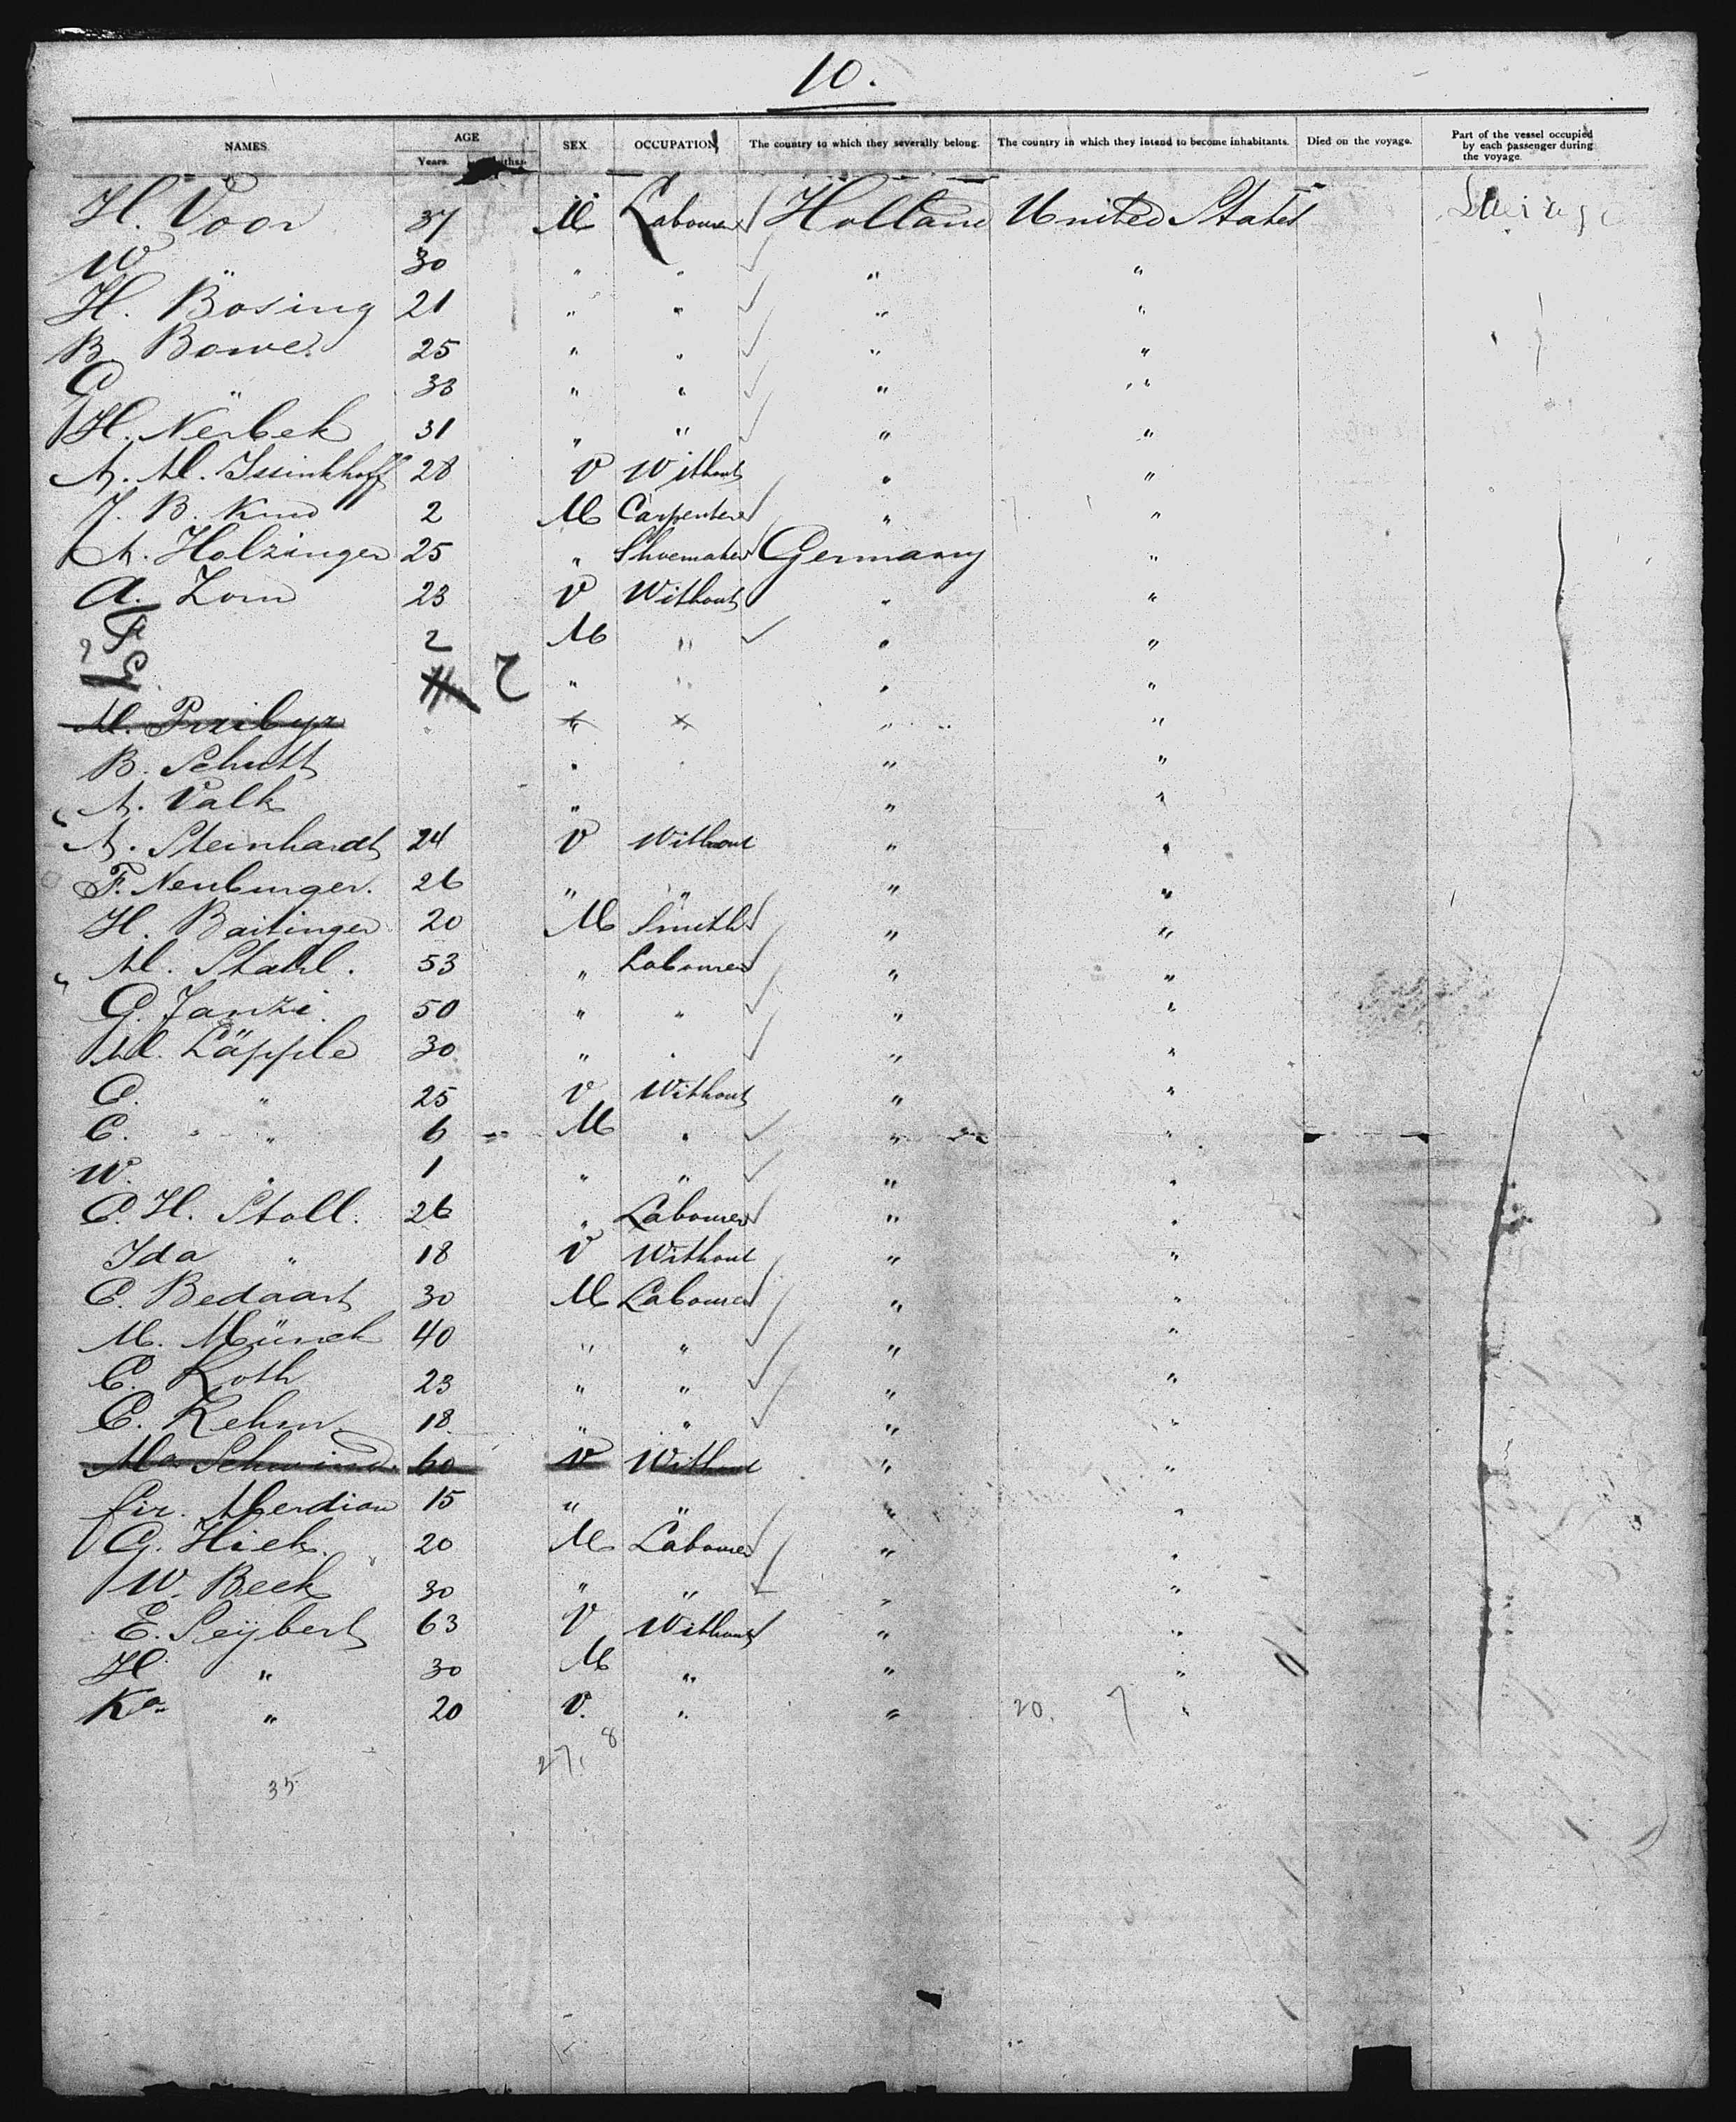 10.
NAMES AGE SEX OCCUPATION The country to which they severally belong. The country in which they intend to become inhabitants. Died on the voyage. Part of the vessel occupied by each passenger during the voyage.
Years.
H. Voor 37 M Labourer Holland United States
W " 30 " " " "
H. Bösing 21 " " " "
B. Bowe 25 " " " "
G " 38 " " " "
H. Nerbek 31 " " " "
A. M. Issinkhoff 28 V Without " "
J. B. 2 M Carpenter " "
A. Holzinger 25 " Shoemaker Germany "
A. Zorn 23 V Without " "
F 2 M " " "
G 2 " " " "
M. Przibyr " "
B. Schutt " " " "
A. Valk " " "
A. Steinhardt 24 V Without " "
F. Neuburger. 26 " " " "
H. Baitinger 20 M Smith " "
M. Stahl. 53 " Labourer " "
G. Janzi. 50 " " " "
M. Läpple 30 " " " "
C. " 25 V Without " "
C. " 6 M " " "
W. " 1 " " " "
C. H. Stoll. 26 " Labourer " "
Ida " 18 V Without " "
C. Bedaart 30 M Labourer " "
M. Münch 40 " " " "
C. Roth 23 " " " "
C. Rehm 18 " " " "
Ma Schwind. 60 V Without " "
Cir. Merdian 15 " " " "
G. Hick. 20 M Labourer " "
W. Beck 30 " " " "
E. Seÿbert 63 V Without " "
H. " 30 M " " "
Ka " 20 V. " " 20. 7 "
27. 8
35